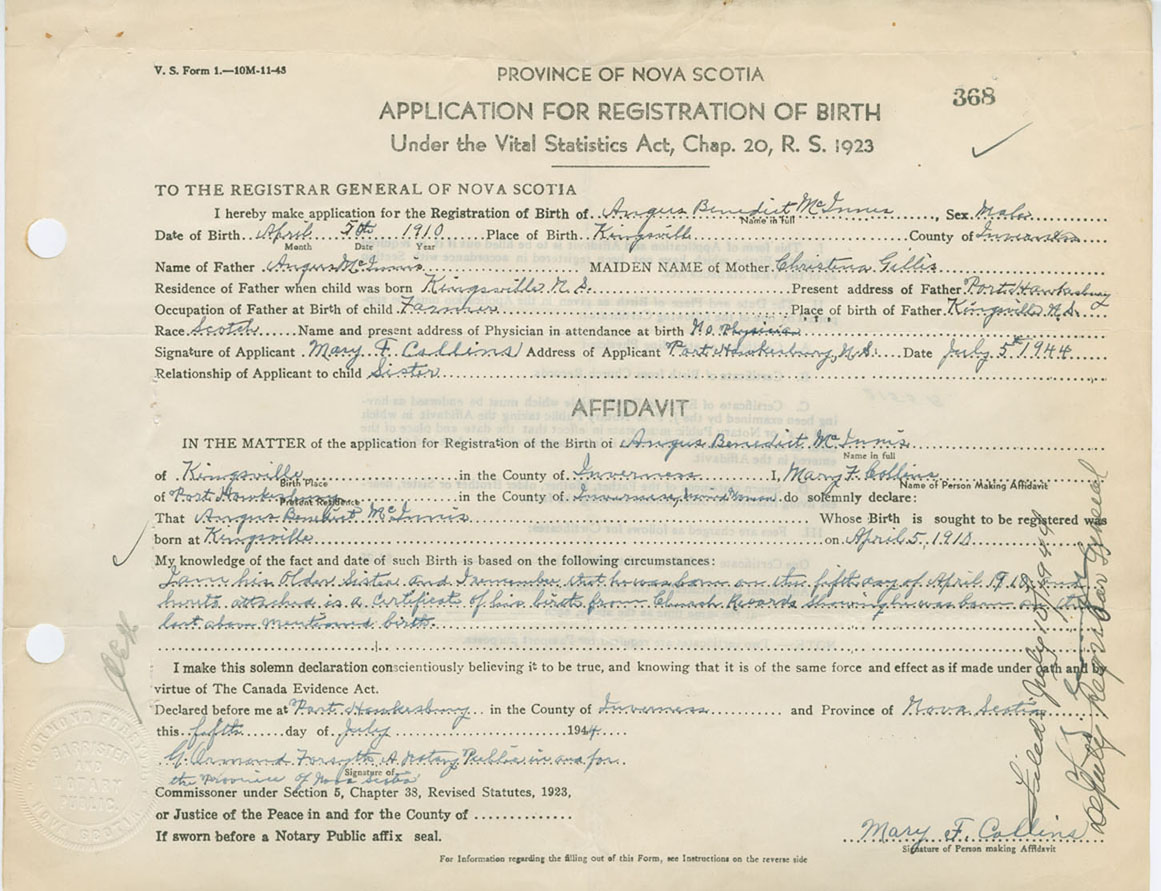 V. S. Form 1.—10M-11-43
PROVINCE OF NOVA SCOTIA
368
APPLICATION FOR REGISTRATION OF BIRTH
Under the Vital Statistics Act, Chap. 20, R. S. 1923
TO THE REGISTRAR GENERAL OF NOVA SCOTIA
I hereby make application for the Registration of Birth of Angus Benedict McInnis, Sex Male
Name in full
Date of Birth April 5th 1910 Place of Birth Kingsville County of Inverness
Month Date Year
Name of Father Angus McInnis MAIDEN NAME of Mother Christena Gillis
Residence of Father when child was born Kingsville N.S. Present address of Father Port Hawkesbury
Occupation of Father at Birth of child Farmer Place of birth of Father Kingsville N.S.
Race Scotch Name and present address of Physician in attendance at birth No Physician
Signature of Applicant Mary F. Collins Address of Applicant Port Hawkesbury, N.S. Date July 5th 1944
Relationship of Applicant to child Sister
AFFIDAVIT
IN THE MATTER of the application for Registration of the Birth of Angus Benedict McInnis
Name in full
of Kingsville in the County of Inverness I, Mary F. Collins
Birth Place Name of Person Making Affidavit
of Port Hawkesbury in the County of Inverness, Married Woman do solemnly declare:
Present Residence
That Angus Benedict McInnis Whose Birth is sought to be registered was
born at Kingsville on April 5, 1910
My knowledge of the fact and date of such Birth is based on the following circumstances:
I am his Older Sister and I remember that he was born on the fifth day of April 1910 and
hereto attached is a certificate of his birth from Church Records showing he was born on the
last above mentioned birth.
I make this solemn declaration conscientiously believing it to be true, and knowing that it is of the same force and effect as if made under oath and by
virtue of The Canada Evidence Act.
Declared before me at Port Hawkesbury in the County of Inverness and Province of Nova Scotia
this fifth day of July 1944
G. Ormond Forsyth A Notary Public in and for
the Province of Nova Scotia
Signature of
Commissioner under Section 5, Chapter 38, Revised Statutes, 1923,
or Justice of the Peace in and for the County of
If sworn before a Notary Public affix seal.
Mary F. Collins
Signature of Person making Affidavit
For Information regarding the filling out of this Form, see Instructions on the reverse side
Filed July 10, 1944
Deputy Registrar General
G. ORMOND FORSYTH
BARRISTER
AND
NOTARY
PUBLIC.
NOVA SCOTIA